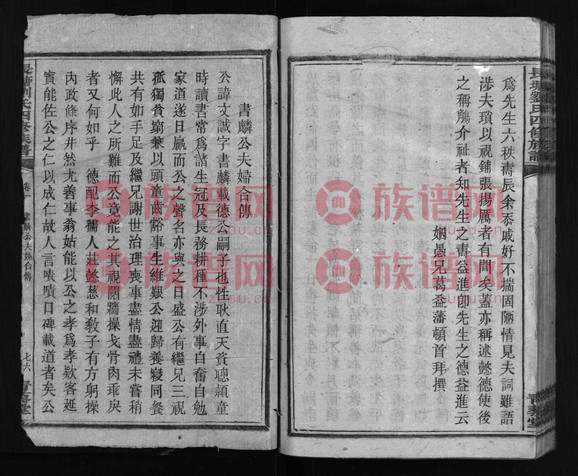 長塘劉氏四修族譜
爲先生六秩壽辰余忝戚好不揣固陋情見夫詞雖語
涉夫瑣以視鋪張揚厲者有間矣蓋亦稱述懿德使後
之稱觴介祉者知先生之壽益進卽先生之德益進云
姻愚兄葛益藩頓首拜撰
書麟公夫婦合傳
公諱文誠字書麟載德公嗣子也性耿直天資聰頴童
時讀書常爲諸生冠及長務耕種不涉外事自奮自勉
家道遂日贏而公之譽名亦與之日盛公有繼兄三視
孤獨貧窮兼以頭童齒豁事生維艱公迎歸養寢同餐
共有如手足及繼兄謝世治理喪事盡情盡禮未嘗稍
懈此人之所難而公竟能之其視鬩牆操戈骨肉乖戾
者又何如乎 德配李孺人莊懿慈和教子有方躬操
內政條序井然尤善事翁姑能以公之孝爲孝欵客延
賓能佐公之仁以成仁故人言嘖嘖口碑載道者矣公
長塘劉氏四修族譜
卷
書麟公夫婦合傳
七六
族谱网
zupu.cn